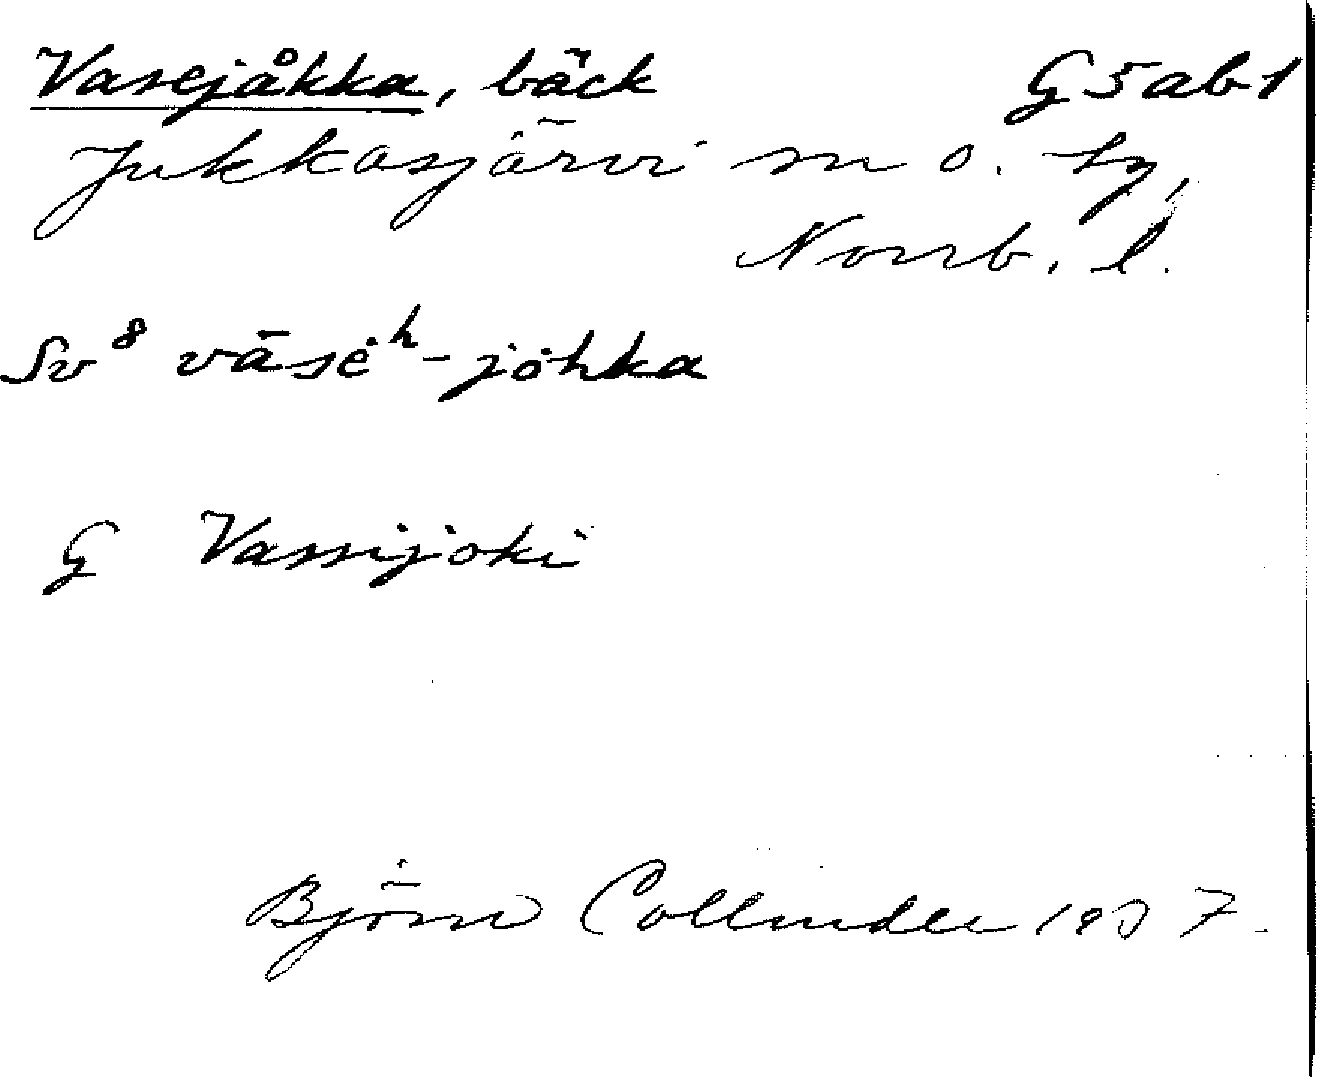 Vasejåkka, bäck G5ab1
Jukkasjärvi sn o. tg,
Norrb. l.
Sv⁸ vāsēʰ-jȯhka
G Vassijoki
Björn Collinder 1957.